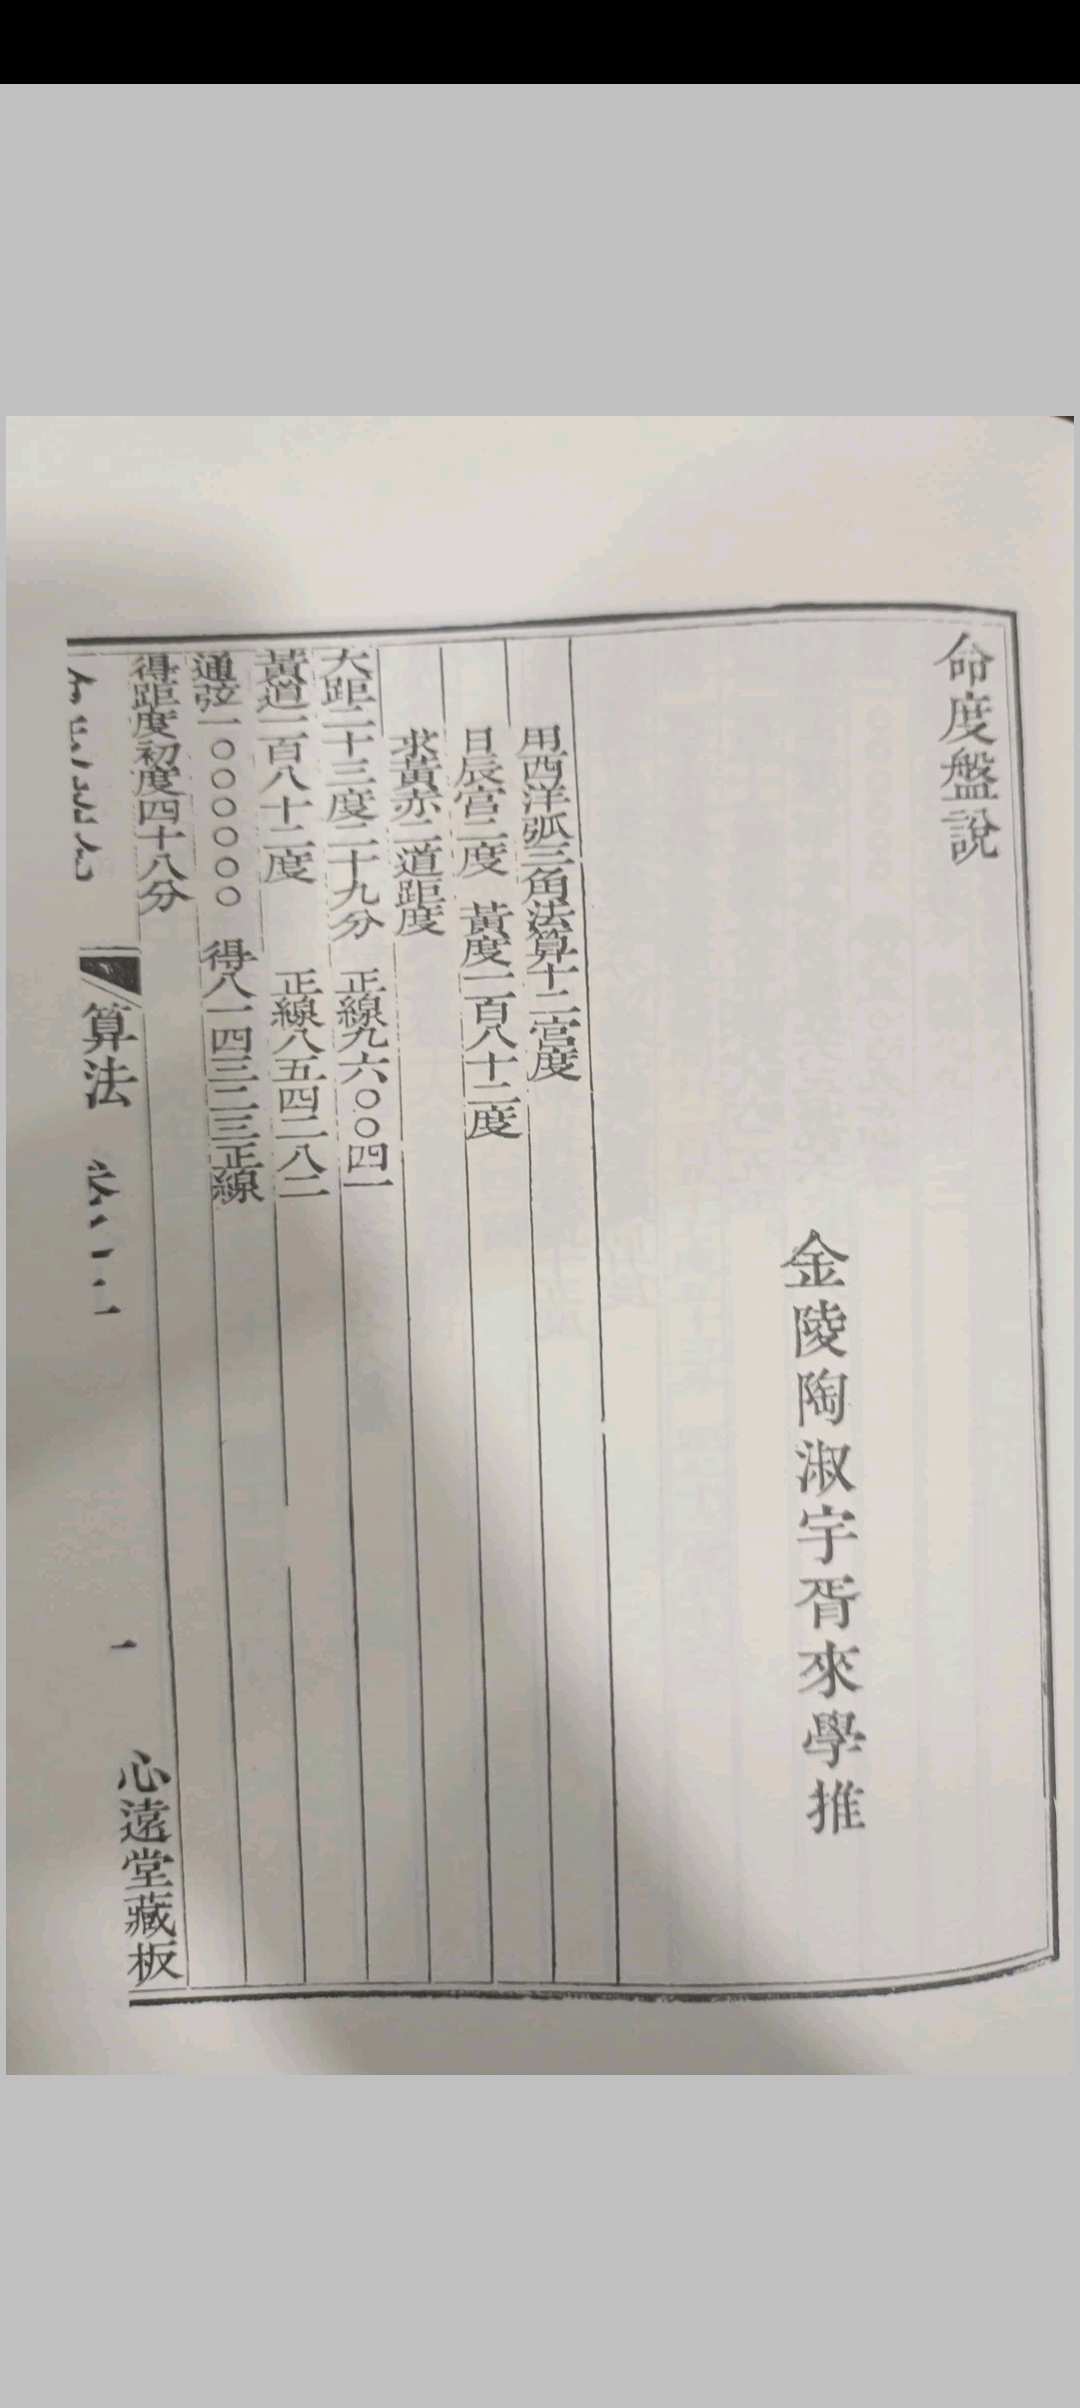 命度盤說
金陵陶淑宇胥來學推
用西洋弧三角法算十二宮度
日辰宮二度 黃度一百八十二度
求黃赤二道距度
大距二十三度二十九分 正線九六〇〇四一
黃道一百八十二度 正線八五四二八二
通弦一〇〇〇〇〇〇 得八一四三二三正線
得距度初度四十八分
算法
一
心遠堂藏板